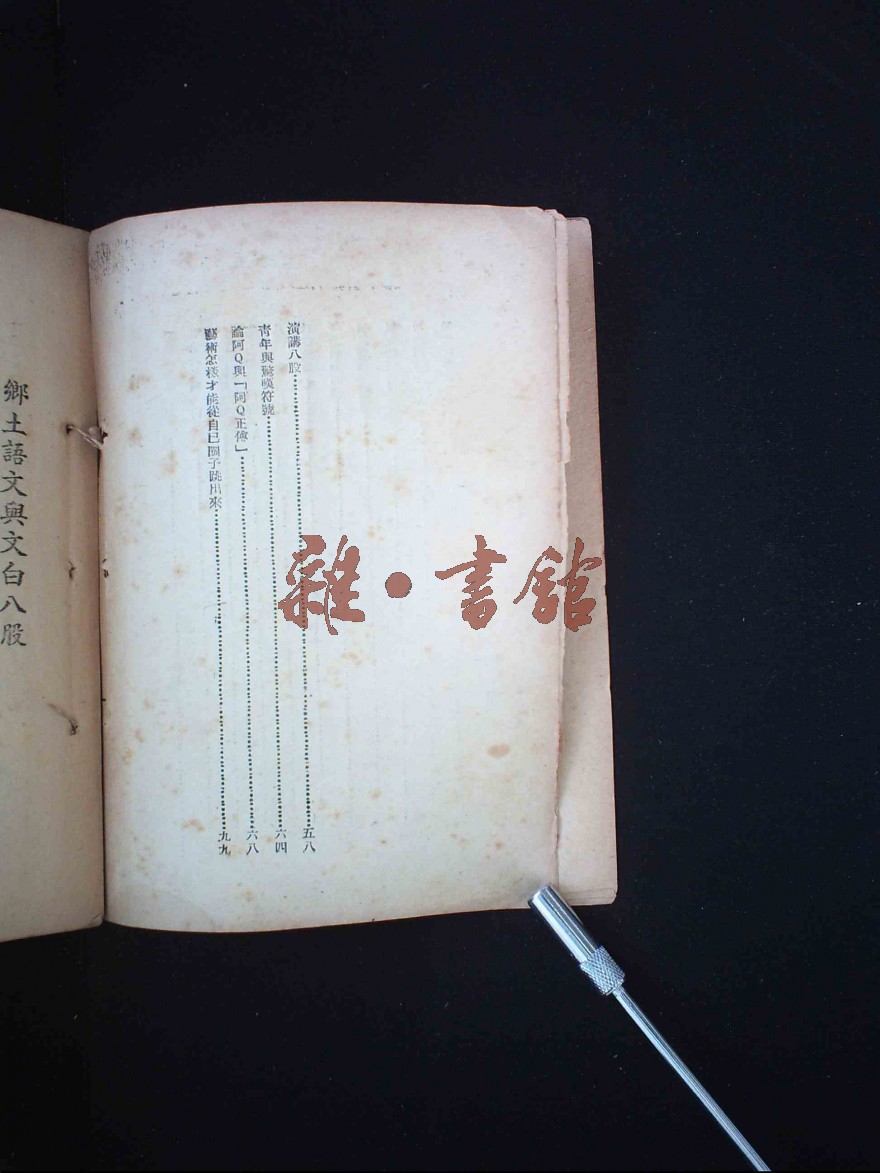 演講八股……五八
青年與驚嘆符號……六四
論阿Q與「阿Q正傳」……六八
藝術怎樣才能從自己圈子跳出來……九九
鄉土語文與文白八股
雜·書館